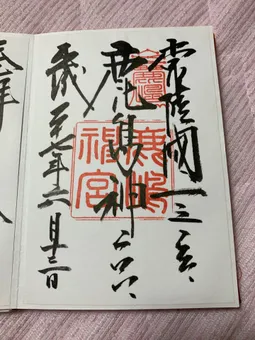 常陸國一之宮
鹿島神宮
平成二十七年六月十三日
鹿嶋
神宮
奉拝